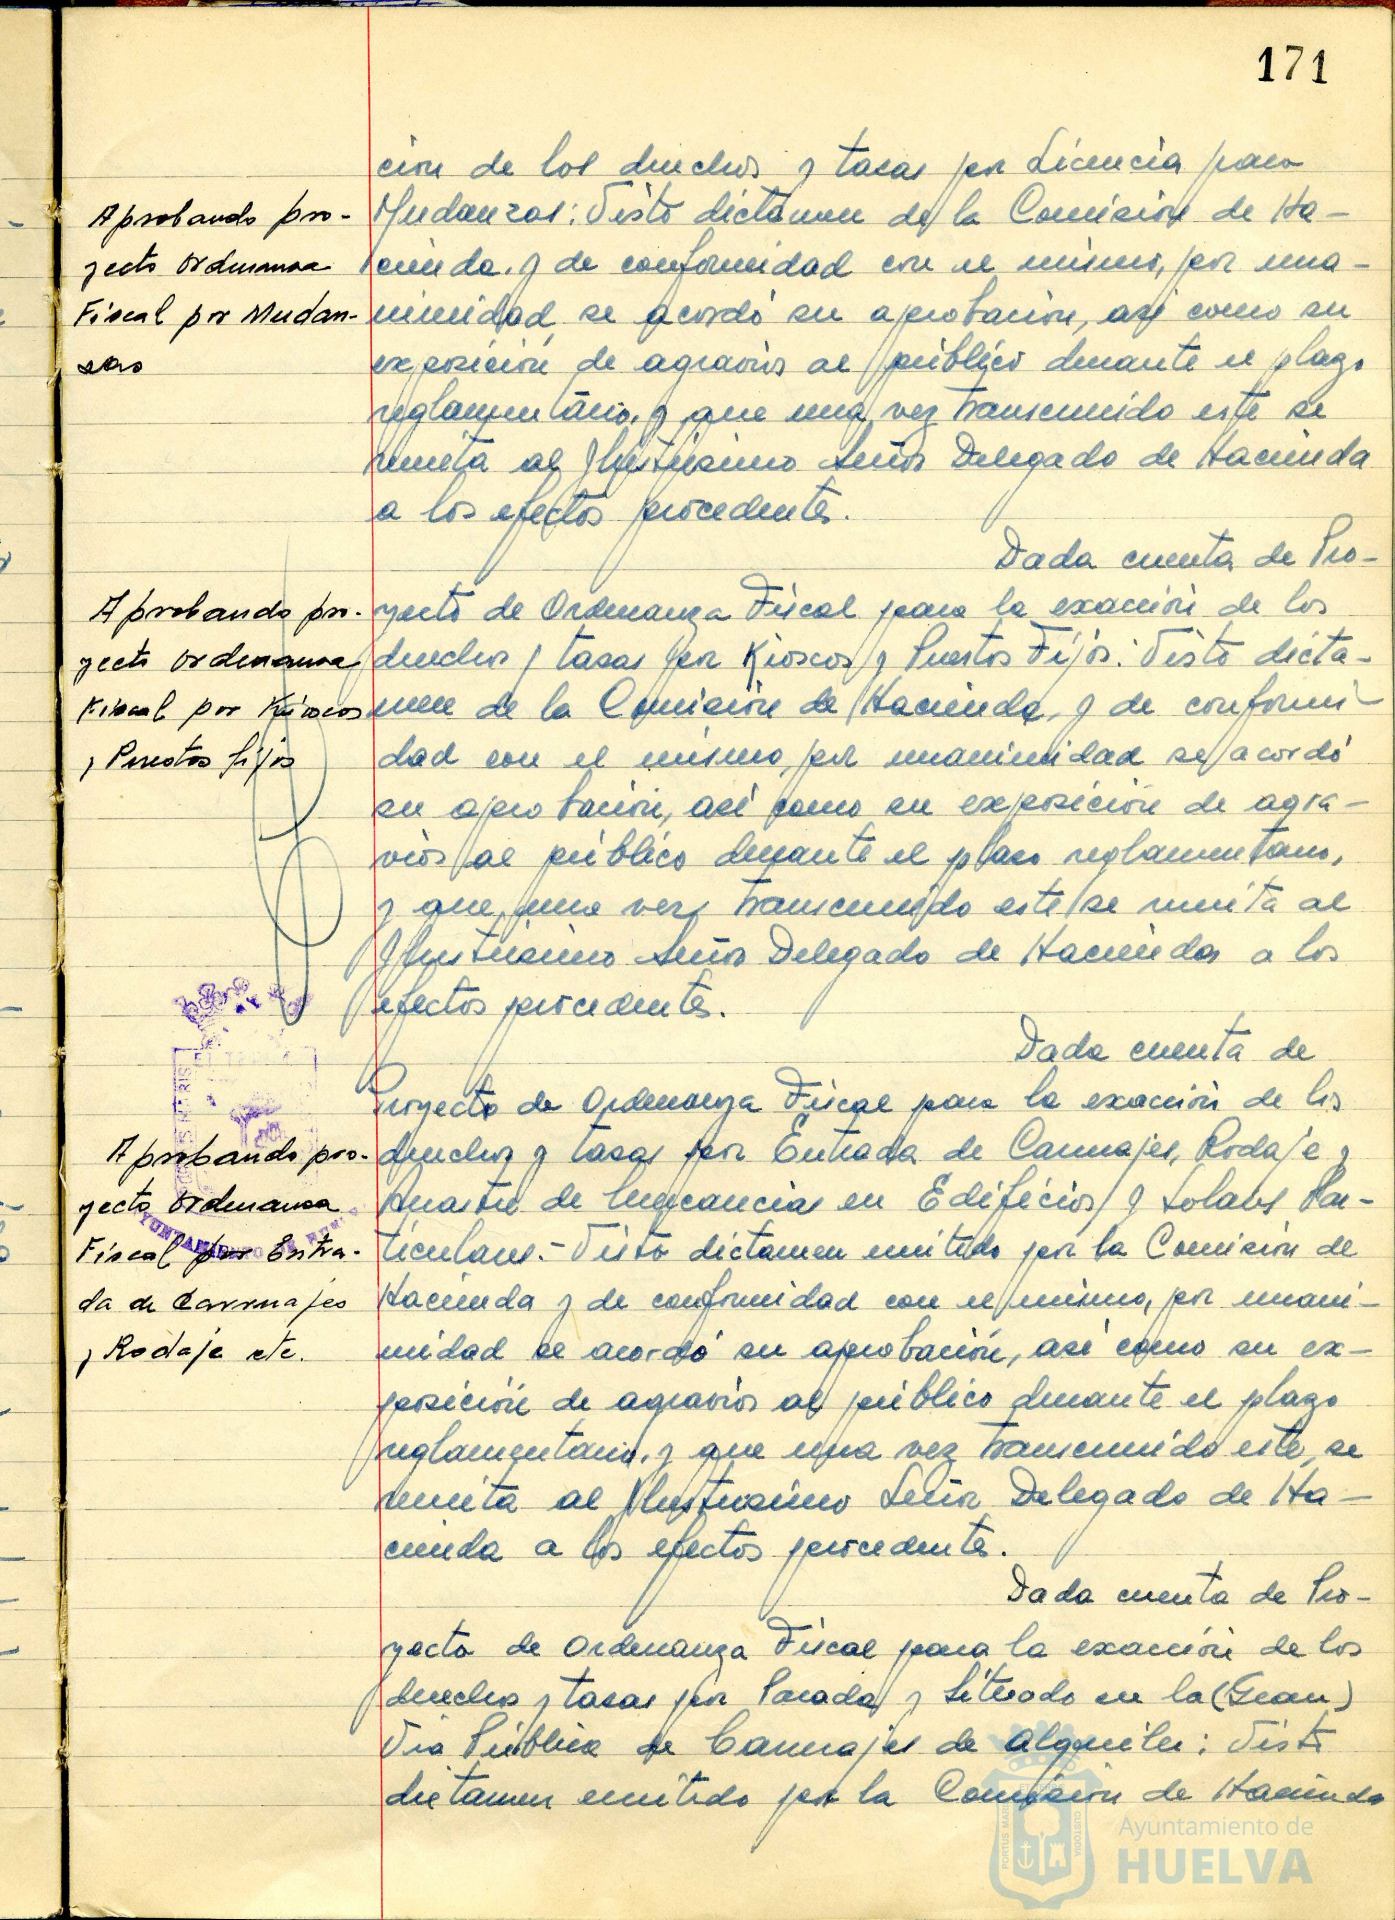 171
ción de los derechos y tasas por Licencia para
Aprobando pro-
Mudanzas: Visto dictamen de la Comisión de Ha-
yecto Ordenanza
cienda. y de conformidad con el mismo, por una-
Fiscal por Mudan-
nimidad se acordó su aprobación, así como su
zas
exposición de agravios al público durante el plazo
reglamentário, y que una vez transcurrido este se
remita al Ilustrísimo Señor Delegado de Hacienda
a los efectos procedentes.
Dada cuenta de Pro-
Aprobando pro-
yecto de Ordenanza Fiscal para la exacción de los
yecto Ordenanza
derechos y tasas por Kioscos y Puestos Fijos: Visto dicta-
Fiscal por Kioscos
men de la Comisión de Hacienda, y de conformi-
y Puestos fijos
dad con el mismo, por unanimidad se acordó
su aprobación, así como su exposición de agra-
vios al público durante el plazo reglamentario,
y que una vez transcurrido este se remita al
Ilustrísimo Señor Delegado de Hacienda a los
efectos procedentes.
Dada cuenta de
Proyecto de Ordenanza Fiscal para la exacción de los
Aprobando pro-
derechos y tasas por Entrada de Carruajes, Rodaje y
yecto Ordenanza
Arrastre de Mercancias en Edificios y Solares Par-
Fiscal por Entra-
ticulares.- Visto dictamen emitido por la Comisión de
da de Carruajes
Hacienda y de conformidad con el mismo, por unani-
y Rodaje etc.
midad se acordó su aprobación, así como su ex-
posición de agravios al público durante el plazo
reglamentario, y que una vez transcurrido este, se
remita al Ilustrísimo Señor Delegado de Ha-
cienda a los efectos procedentes.
Dada cuenta de Pro-
yecto de Ordenanza Fiscal para la exacción de los
derechos y tasas por Parada y Situado en la (Gran)
Via Pública de Carruajes de alquiler: Visto
dictamen emitido por la Comisión de Hacienda
Ayuntamiento de
HUELVA